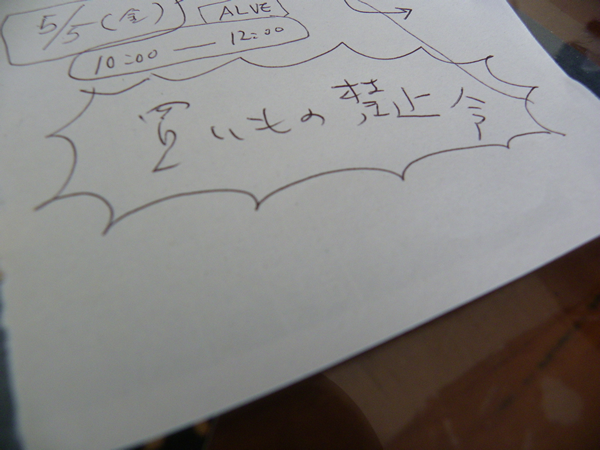 5/5(金) ALVE
10:00 — 12:00
買いもの禁止令